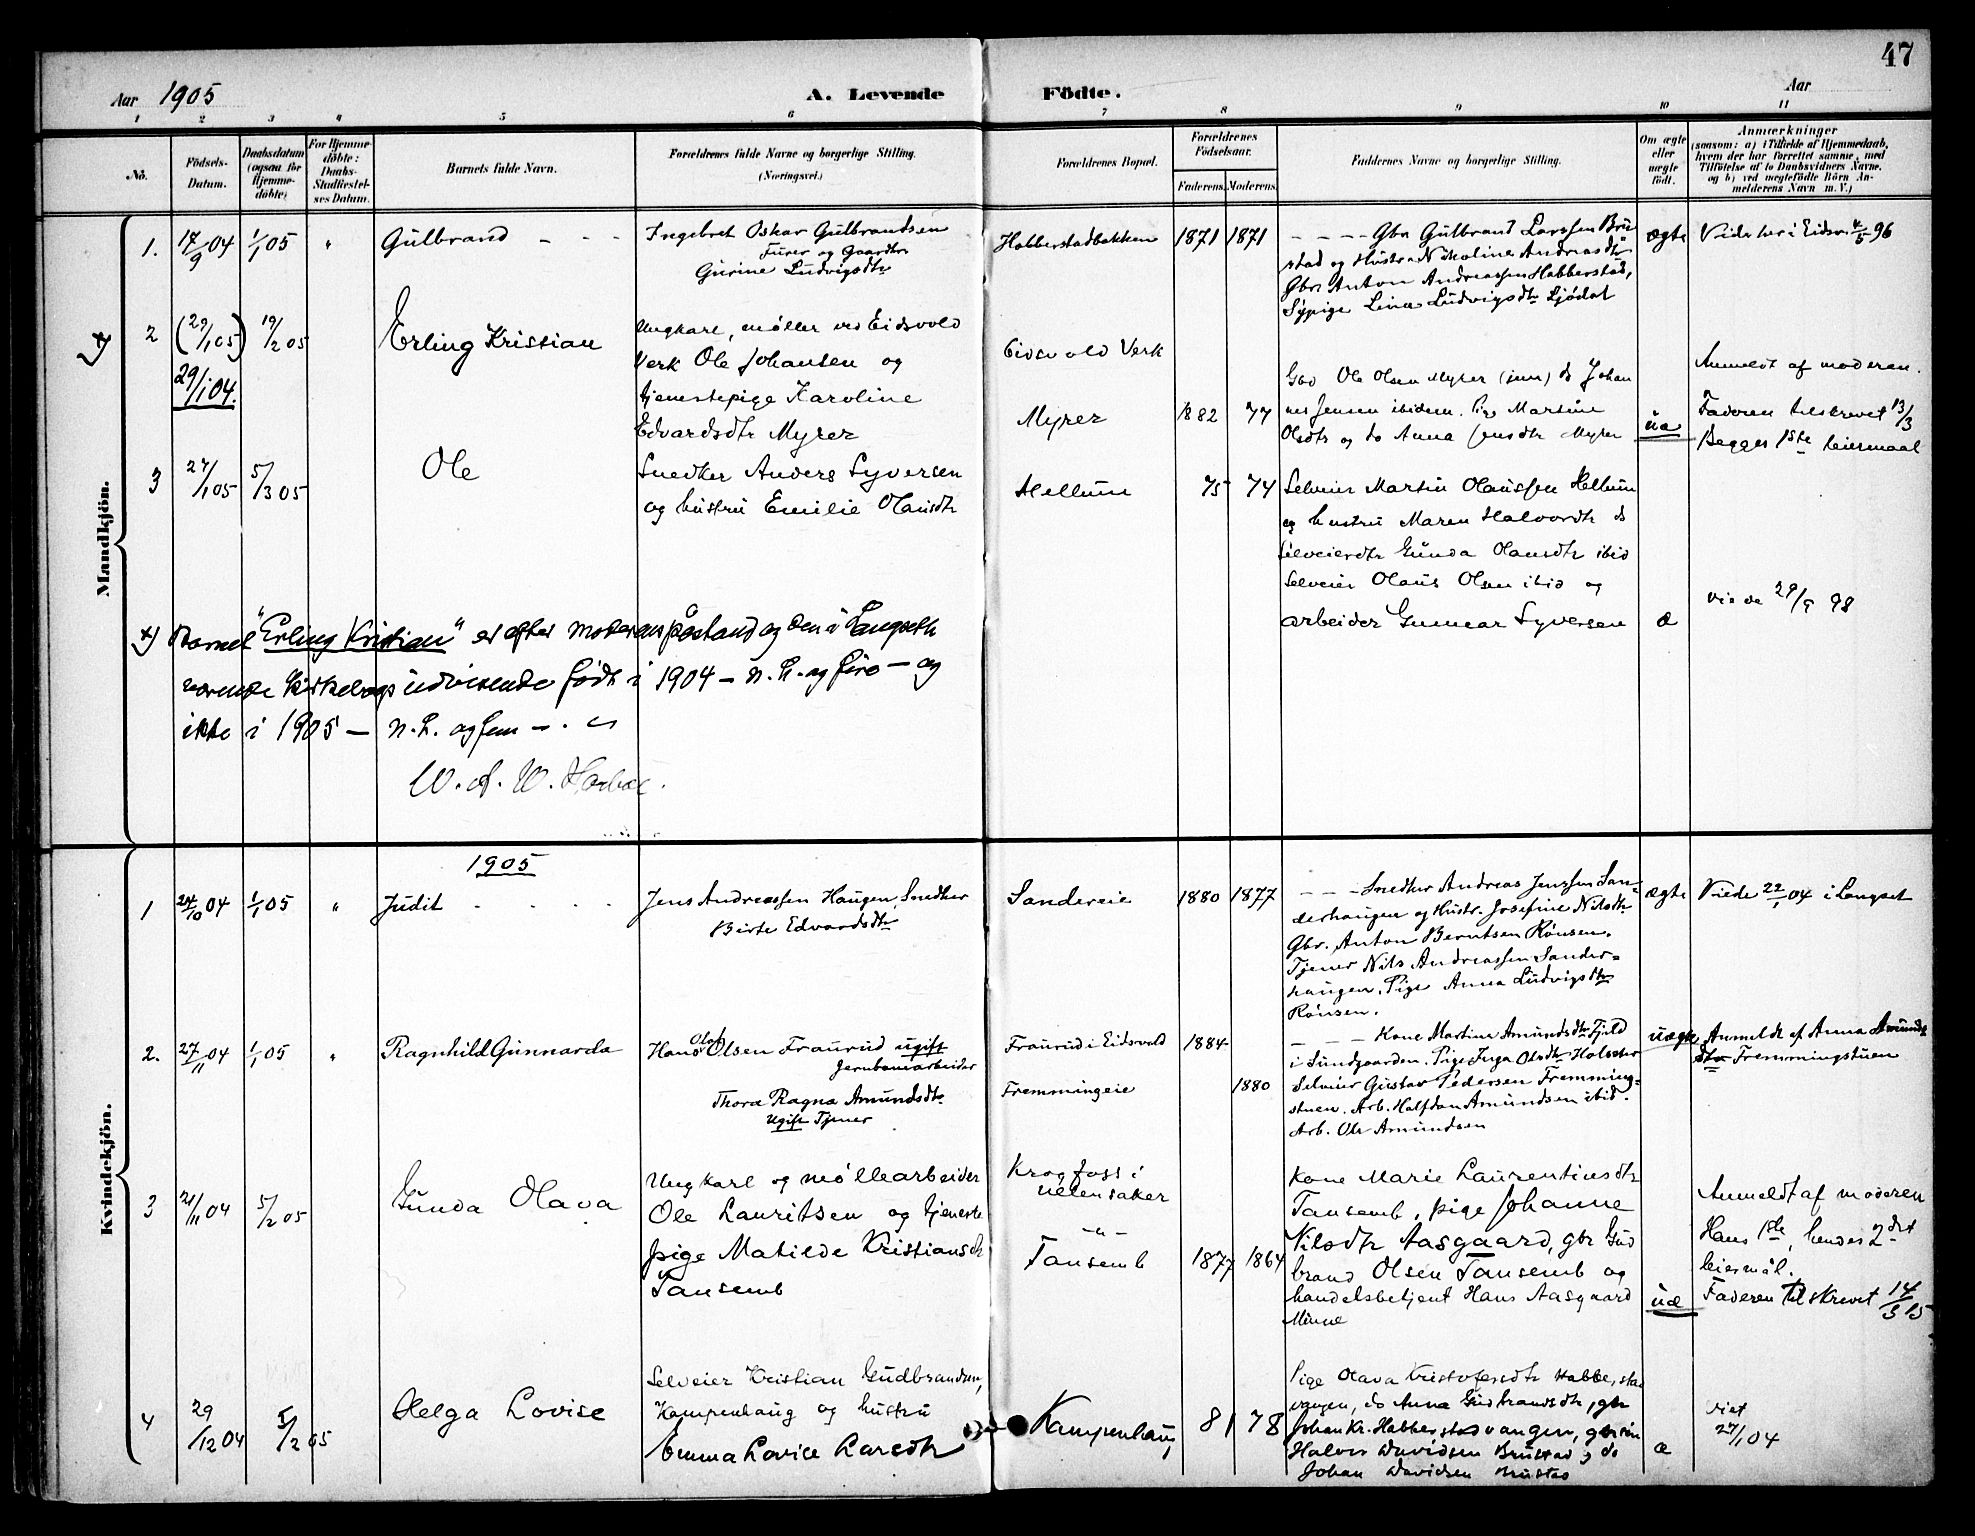 47
Aar 1905
A. Levende
Födte.
Aar
1 2 3 4 5 6 7 8 9 10 11
No.
Födsels-Datum.
Daabsdatum (ogsaa for Hjemme-döbte)
For Hjemme-döbte: Daabs-Stadfæstel-ses Datum.
Barnets fulde Navn.
Forældrenes fulde Navne og borgerlige Stilling.
(Næringsvei.)
Forældrenes Bopæl.
Forældrenes Födselsaar.
Faderens. Moderens.
Faddernes Navne og borgerlige Stilling.
Om ægte eller uægte födt.
Anmærkninger
(saasom: a) i Tilfælde af Hjemmedaab,
hvem der har forrettet samme, med
Tilföielse af to Daabsvidners Navne,
og b) ved uægtefödte Börn An-
melderens Navn m. V.)
Mandkjön.
1. 17/9 04 1/1 05 " Gulbrand - - -
Ingebret Oskar Gulbrandsen
Furer og Gaardbr
Gurine Ludvigsdtr
Habberstadbakken 1871 1871
- - - - Gbr Gulbrand Larssen Bru
stad og Hustr Nikoline Andreasdtr
Gbr Anton Andreassen Habberstad,
Sypige Lina Ludvigsdtr Ljødal
ægte
Viede her i Eidsv. 4/5 96
x)
2 (29/1 05) 19/2 05 Erling Kristian
29/1 04.
Ungkarl, møller ved Eidsvold
Verk Ole Johansen og
tjenestepige Karoline
Edvardsdtr Myrer
Eidsvold Verk
Myrer 1882 77
Gbd Ole Olsen Myrer (jun) ds Johan
nes Jensen ibidem. Pige Martine
Olsdtr og do Anna Jensdtr Myrer
uæ
Anmeldt af moderen.
Faderen tilskrevet 13/3
Begges 1ste leiermaal
3 27/1 05 5/3 05 Ole
Snedker Anders Syversen
og hustru Emilie Olausdtr
Hellum 75 74
Selveier Martin Olaussen Hellum
og hustru Maren Halvordtr ds
selveierdtr Gunda Olausdtr ibid
selveier Olaus Olsen ibid og
arbeider Gunnar Syversen
æ
viede 29/9 98
x) Barnet "Erling Kristian" er efter moderens påstand og den i Langseth
værende kirkebogs udvisende født i 1904 - n. h. og fire - og
ikke i 1905 - n. h. og fem - .
W. A. W.
Kvindekjön.
1905
1 24/10 04 1/1 05 " Judit - - - -
Jens Andreassen Haugen, Snedker
Birte Edvardsdtr
Sandereie 1880 1877
- - - Snedker Andreas Jenssen San-
derhaugen og Hustr. Josefine Nilsdtr
Gbr. Anton Berntsen Rønsen.
Tjener Nils Andreassen Sander-
haugen. Pige Anna Ludvigsdtr
Rønsen.
ægte
Viede 22/1 04 i Langset
2. 27/11 04 1/1 05 " Ragnhild Gunnarda
Hans Olaf Olsen Fraurud ugift
Jernbanearbeider
Thora Ragna Amundsdtr
Ugift Tjener
Fraurud i Eidsvold 1884
Fremmingeie 1880
- - - Kone Martine Amundsdtr Fjeld
i Sundgaarden. Pige Inga Olsdtr
Selveier Gustav Pedersen Fremming-
stuen. Arb. Halfdan Amundsen ibid.
Arb. Ole Amundsen
uægte
Anmeldt af Anna Amunds
dtr Fremmingstuen
3 21/11 04 5/2 05 Gunda Olava
Ungkarl og møllearbeider
Ole Lauritsen og tjeneste
pige Matilde Kristiansdtr
Tansemb
Krogfoss i
Ullensaker
- " -
Tansemb 1877 1864
Kone Marie Laurentiusdtr
Tansemb, pige Johanne
Nilsdtr Aasgaard, gbr Gud
brand Olsen Tansemb og
handelsbetjent Hans Aasgaard
Minne
uæ
Anmeldt af moderen
Hans 1ste, hendes 2det
leiermål.
Faderen tilskrevet 14/3 15
4 29/12 04 5/2 05 Helga Lovise
Selveier Kristian Gudbrandsen,
Kampenhaug og hustru
Emma Lovise Larsdtr
Kampenhaug 81 78
Pige Olava Kristofersdtr Habberstad
vangen, do Anna Gudbrandsdtr, gbr
Johan Kr. Habberstadvangen,
Halvor Davidsen Brustad og do
Johan Davidsen Brustad
æ
viet
27/1 04